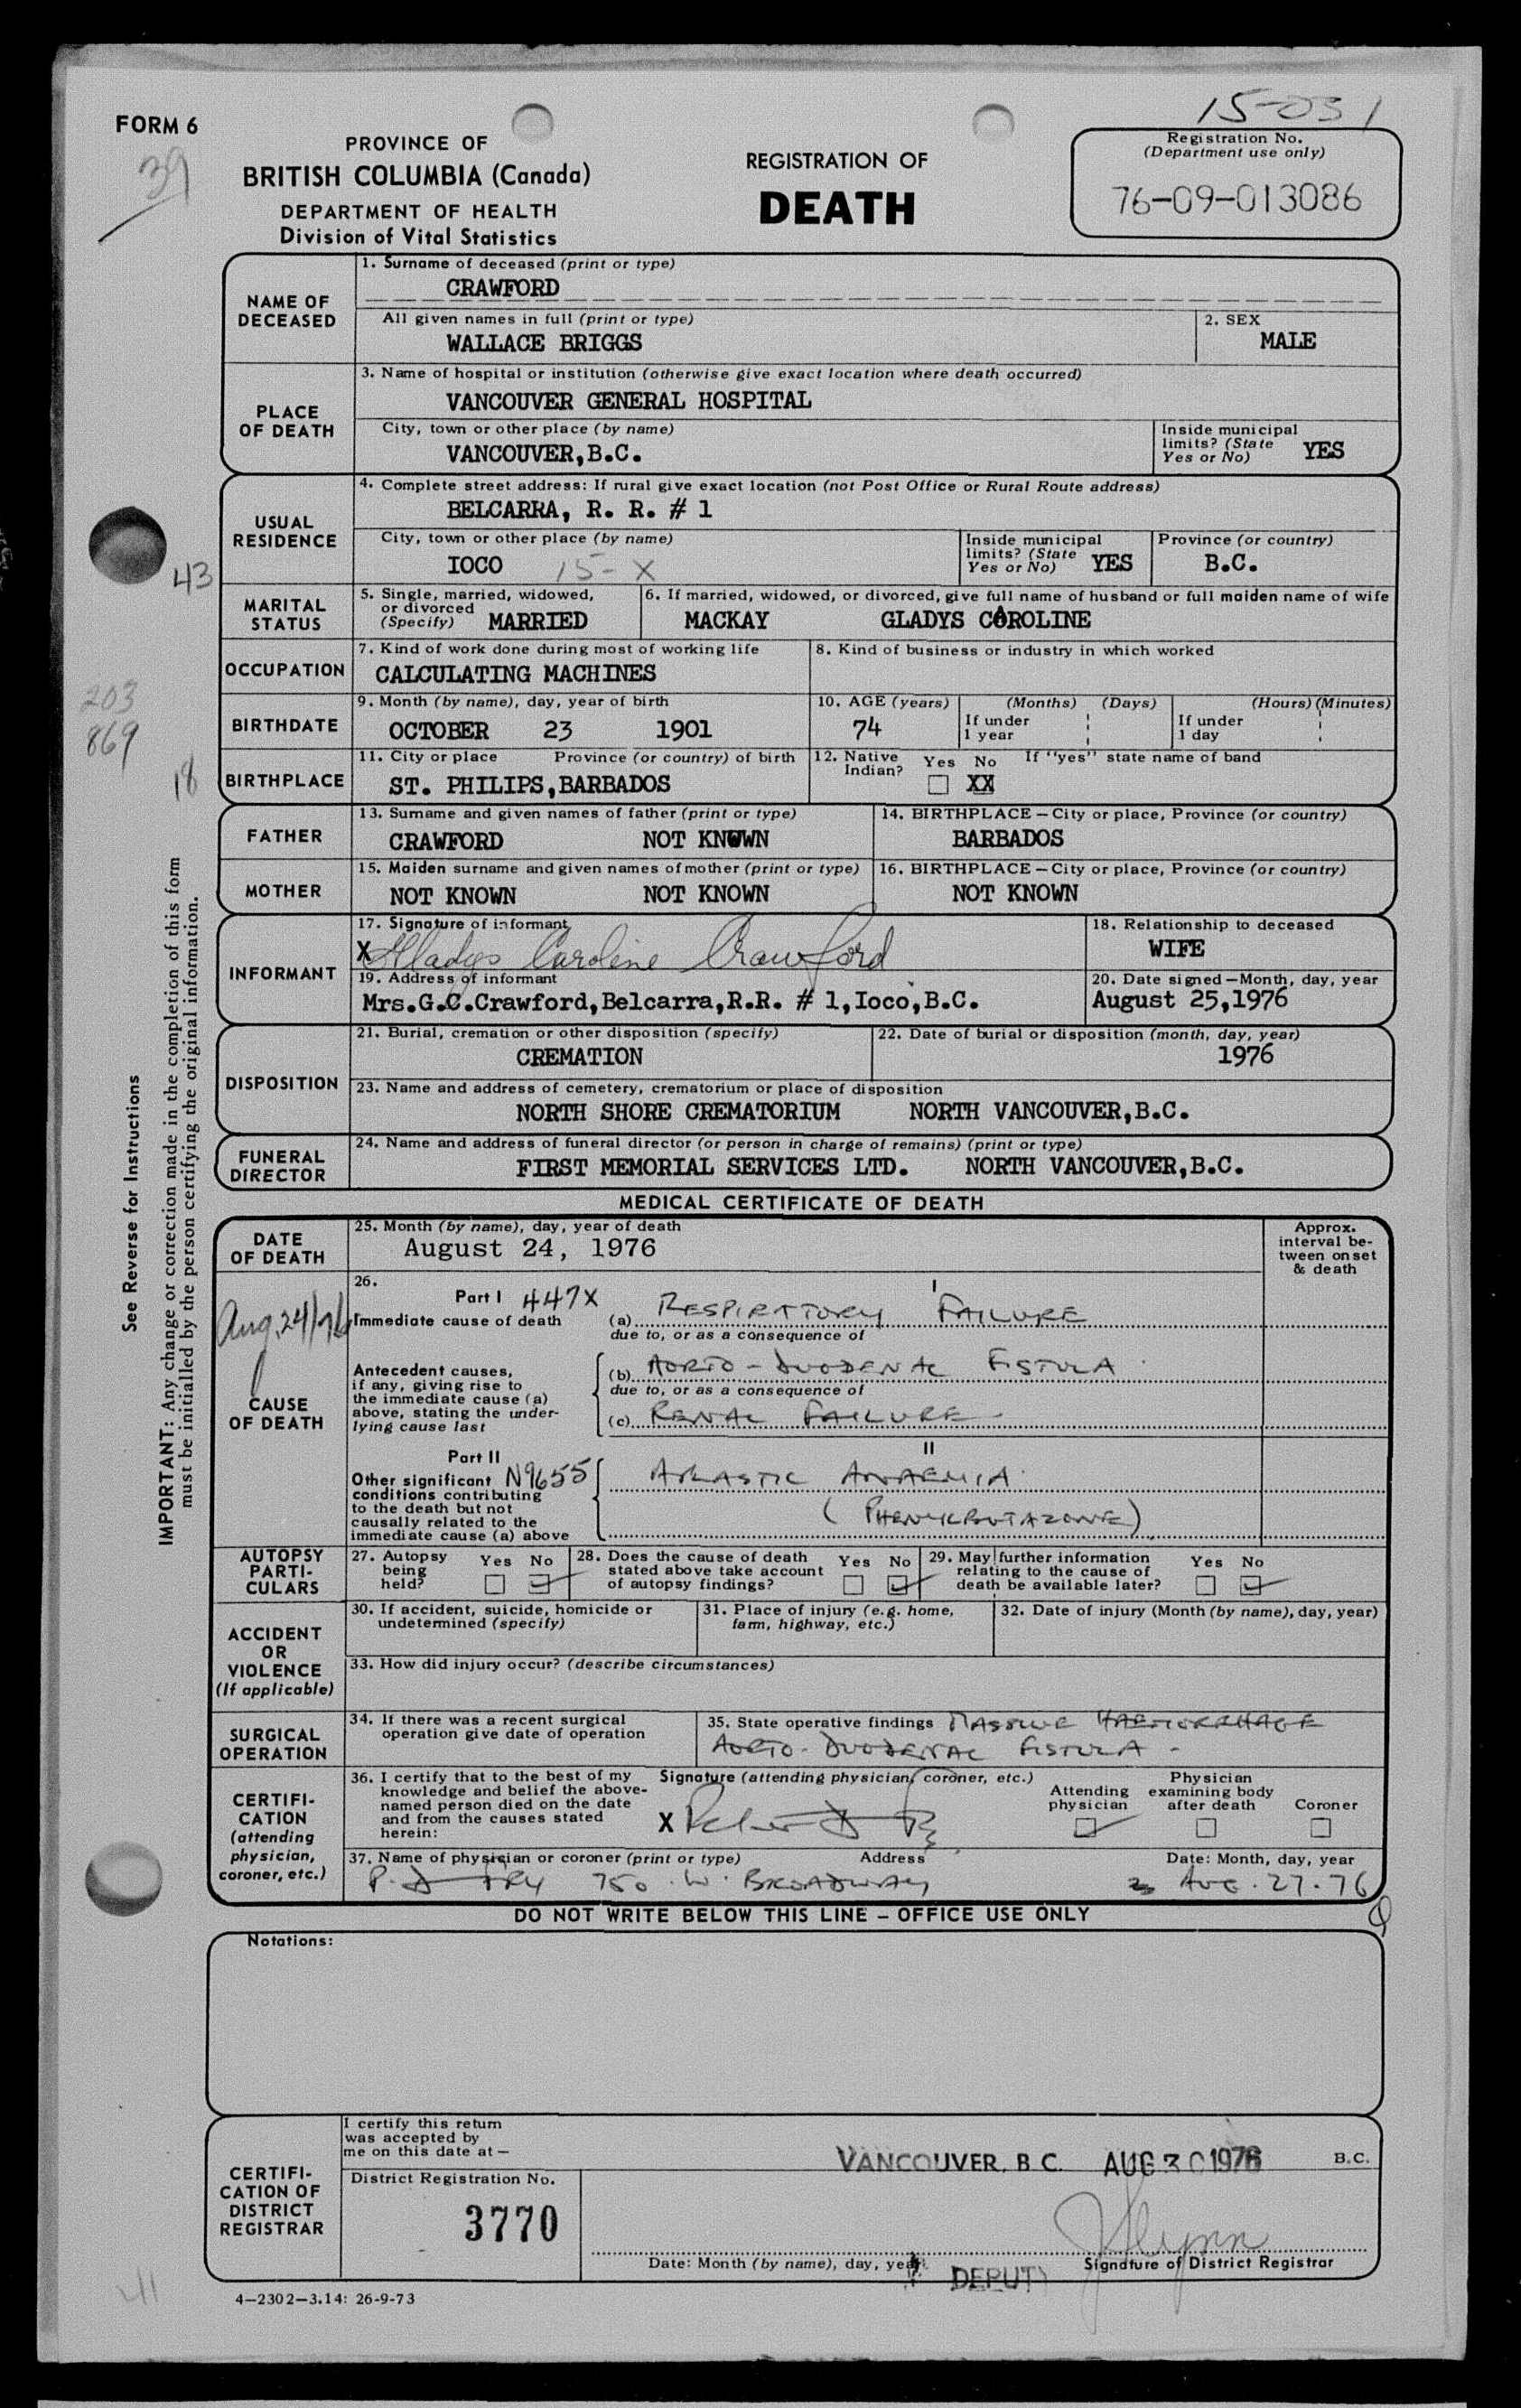 15-031
FORM 6
39
PROVINCE OF
BRITISH COLUMBIA (Canada)
DEPARTMENT OF HEALTH
Division of Vital Statistics
REGISTRATION OF
DEATH
Registration No.
(Department use only)
76-09-013086
NAME OF DECEASED
1. Surname of deceased (print or type)
CRAWFORD
All given names in full (print or type)
WALLACE BRIGGS
2. SEX
MALE
PLACE OF DEATH
3. Name of hospital or institution (otherwise give exact location where death occurred)
VANCOUVER GENERAL HOSPITAL
City, town or other place (by name)
VANCOUVER,B.C.
Inside municipal limits? (State Yes or No) YES
USUAL RESIDENCE
4. Complete street address: If rural give exact location (not Post Office or Rural Route address)
BELCARRA, R. R. # 1
City, town or other place (by name)
IOCO 15-X
Inside municipal limits? (State Yes or No) YES
Province (or country)
B.C.
43
MARITAL STATUS
5. Single, married, widowed, or divorced (Specify) MARRIED
6. If married, widowed, or divorced, give full name of husband or full maiden name of wife
MACKAY GLADYS CAROLINE
OCCUPATION
7. Kind of work done during most of working life
CALCULATING MACHINES
8. Kind of business or industry in which worked
203
869
BIRTHDATE
9. Month (by name), day, year of birth
OCTOBER 23 1901
10. AGE (years)
74
(Months) (Days)
If under 1 year
(Hours) (Minutes)
If under 1 day
18
BIRTHPLACE
11. City or place Province (or country) of birth
ST. PHILIPS,BARBADOS
12. Native Indian? Yes No If "yes" state name of band
XX
FATHER
13. Surname and given names of father (print or type)
CRAWFORD NOT KNOWN
14. BIRTHPLACE – City or place, Province (or country)
BARBADOS
MOTHER
15. Maiden surname and given names of mother (print or type)
NOT KNOWN NOT KNOWN
16. BIRTHPLACE – City or place, Province (or country)
NOT KNOWN
INFORMANT
17. Signature of informant
X Gladys Caroline Crawford
18. Relationship to deceased
WIFE
19. Address of informant
Mrs.G.C.Crawford,Belcarra,R.R. # 1,Ioco,B.C.
20. Date signed – Month, day, year
August 25,1976
DISPOSITION
21. Burial, cremation or other disposition (specify)
CREMATION
22. Date of burial or disposition (month, day, year)
1976
23. Name and address of cemetery, crematorium or place of disposition
NORTH SHORE CREMATORIUM NORTH VANCOUVER,B.C.
FUNERAL DIRECTOR
24. Name and address of funeral director (or person in charge of remains) (print or type)
FIRST MEMORIAL SERVICES LTD. NORTH VANCOUVER,B.C.
See Reverse for Instructions
IMPORTANT: Any change or correction made in the completion of this form
must be initialled by the person certifying the original information.
MEDICAL CERTIFICATE OF DEATH
DATE OF DEATH
25. Month (by name), day, year of death
August 24, 1976
Approx. interval between onset & death
Aug. 24/76
CAUSE OF DEATH
26.
Part I 447X
I
Immediate cause of death
(a) RESPIRATORY FAILURE
due to, or as a consequence of
Antecedent causes,
if any, giving rise to
the immediate cause (a)
above, stating the under-
lying cause last
(b) AORTO-DUODENAL FISTULA
due to, or as a consequence of
(c) RENAL FAILURE
Part II
II
Other significant N9655
conditions contributing
to the death but not
causally related to the
immediate cause (a) above
APLASTIC ANAEMIA
(PHENYLBUTAZONE)
AUTOPSY PARTI-CULARS
27. Autopsy being held? Yes No
28. Does the cause of death stated above take account of autopsy findings? Yes No
29. May further information relating to the cause of death be available later? Yes No
ACCIDENT OR VIOLENCE (If applicable)
30. If accident, suicide, homicide or undetermined (specify)
31. Place of injury (e.g. home, farm, highway, etc.)
32. Date of injury (Month (by name), day, year)
33. How did injury occur? (describe circumstances)
SURGICAL OPERATION
34. If there was a recent surgical operation give date of operation
35. State operative findings MASSIVE HAEMORRHAGE
AORTO-DUODENAL FISTULA -
CERTIFI-CATION (attending physician, coroner, etc.)
36. I certify that to the best of my
knowledge and belief the above-
named person died on the date
and from the causes stated
herein:
Signature (attending physician, coroner, etc.)
X
Attending physician
Physician examining body after death
Coroner
37. Name of physician or coroner (print or type) Address Date: Month, day, year
P. D FRY 750 W. BROADWAY AUG. 27. 76
DO NOT WRITE BELOW THIS LINE – OFFICE USE ONLY
Notations:
CERTIFI-CATION OF DISTRICT REGISTRAR
I certify this return
was accepted by
me on this date at –
VANCOUVER, B C. AUG 30 1976 B.C.
District Registration No.
3770
Date: Month (by name), day, year
DEPUTY
Signature of District Registrar
4–2302–3.14: 26-9-73